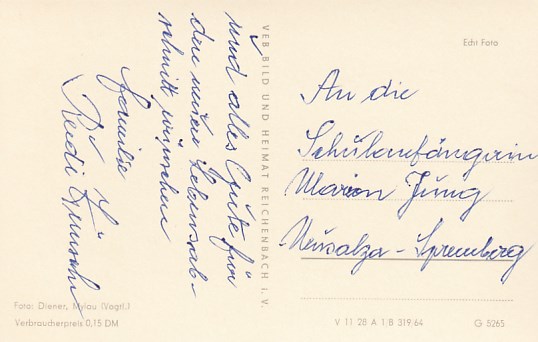 und alles Gute für
den neuen Lebensab-
schnitt wünschen
Familie
VEB BILD UND HEIMAT REICHENBACH I. V.
Echt Foto
An die
Schulanfängerin
Marion Jung
Neusalza-Spremberg
Foto: Diener, Mylau (Vogtl.)
Verbraucherpreis 0,15 DM
V 11 28 A 1/B 319/64
G 5265